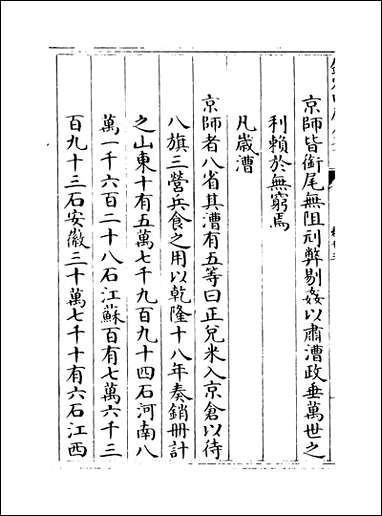 京師皆銜尾無阻刓弊剔姦以肅漕政垂萬世之
利賴於無窮焉
凡嵗漕
京師者八省其漕有五等曰正兊米入京倉以待
八旗三營兵食之用以乾隆十八年奏銷冊計
之山東十有五萬七千九百九十四石河南八
萬一千六百二十八石江蘇百有七萬六千三
百九十三石安徽三十萬七千十有六石江西